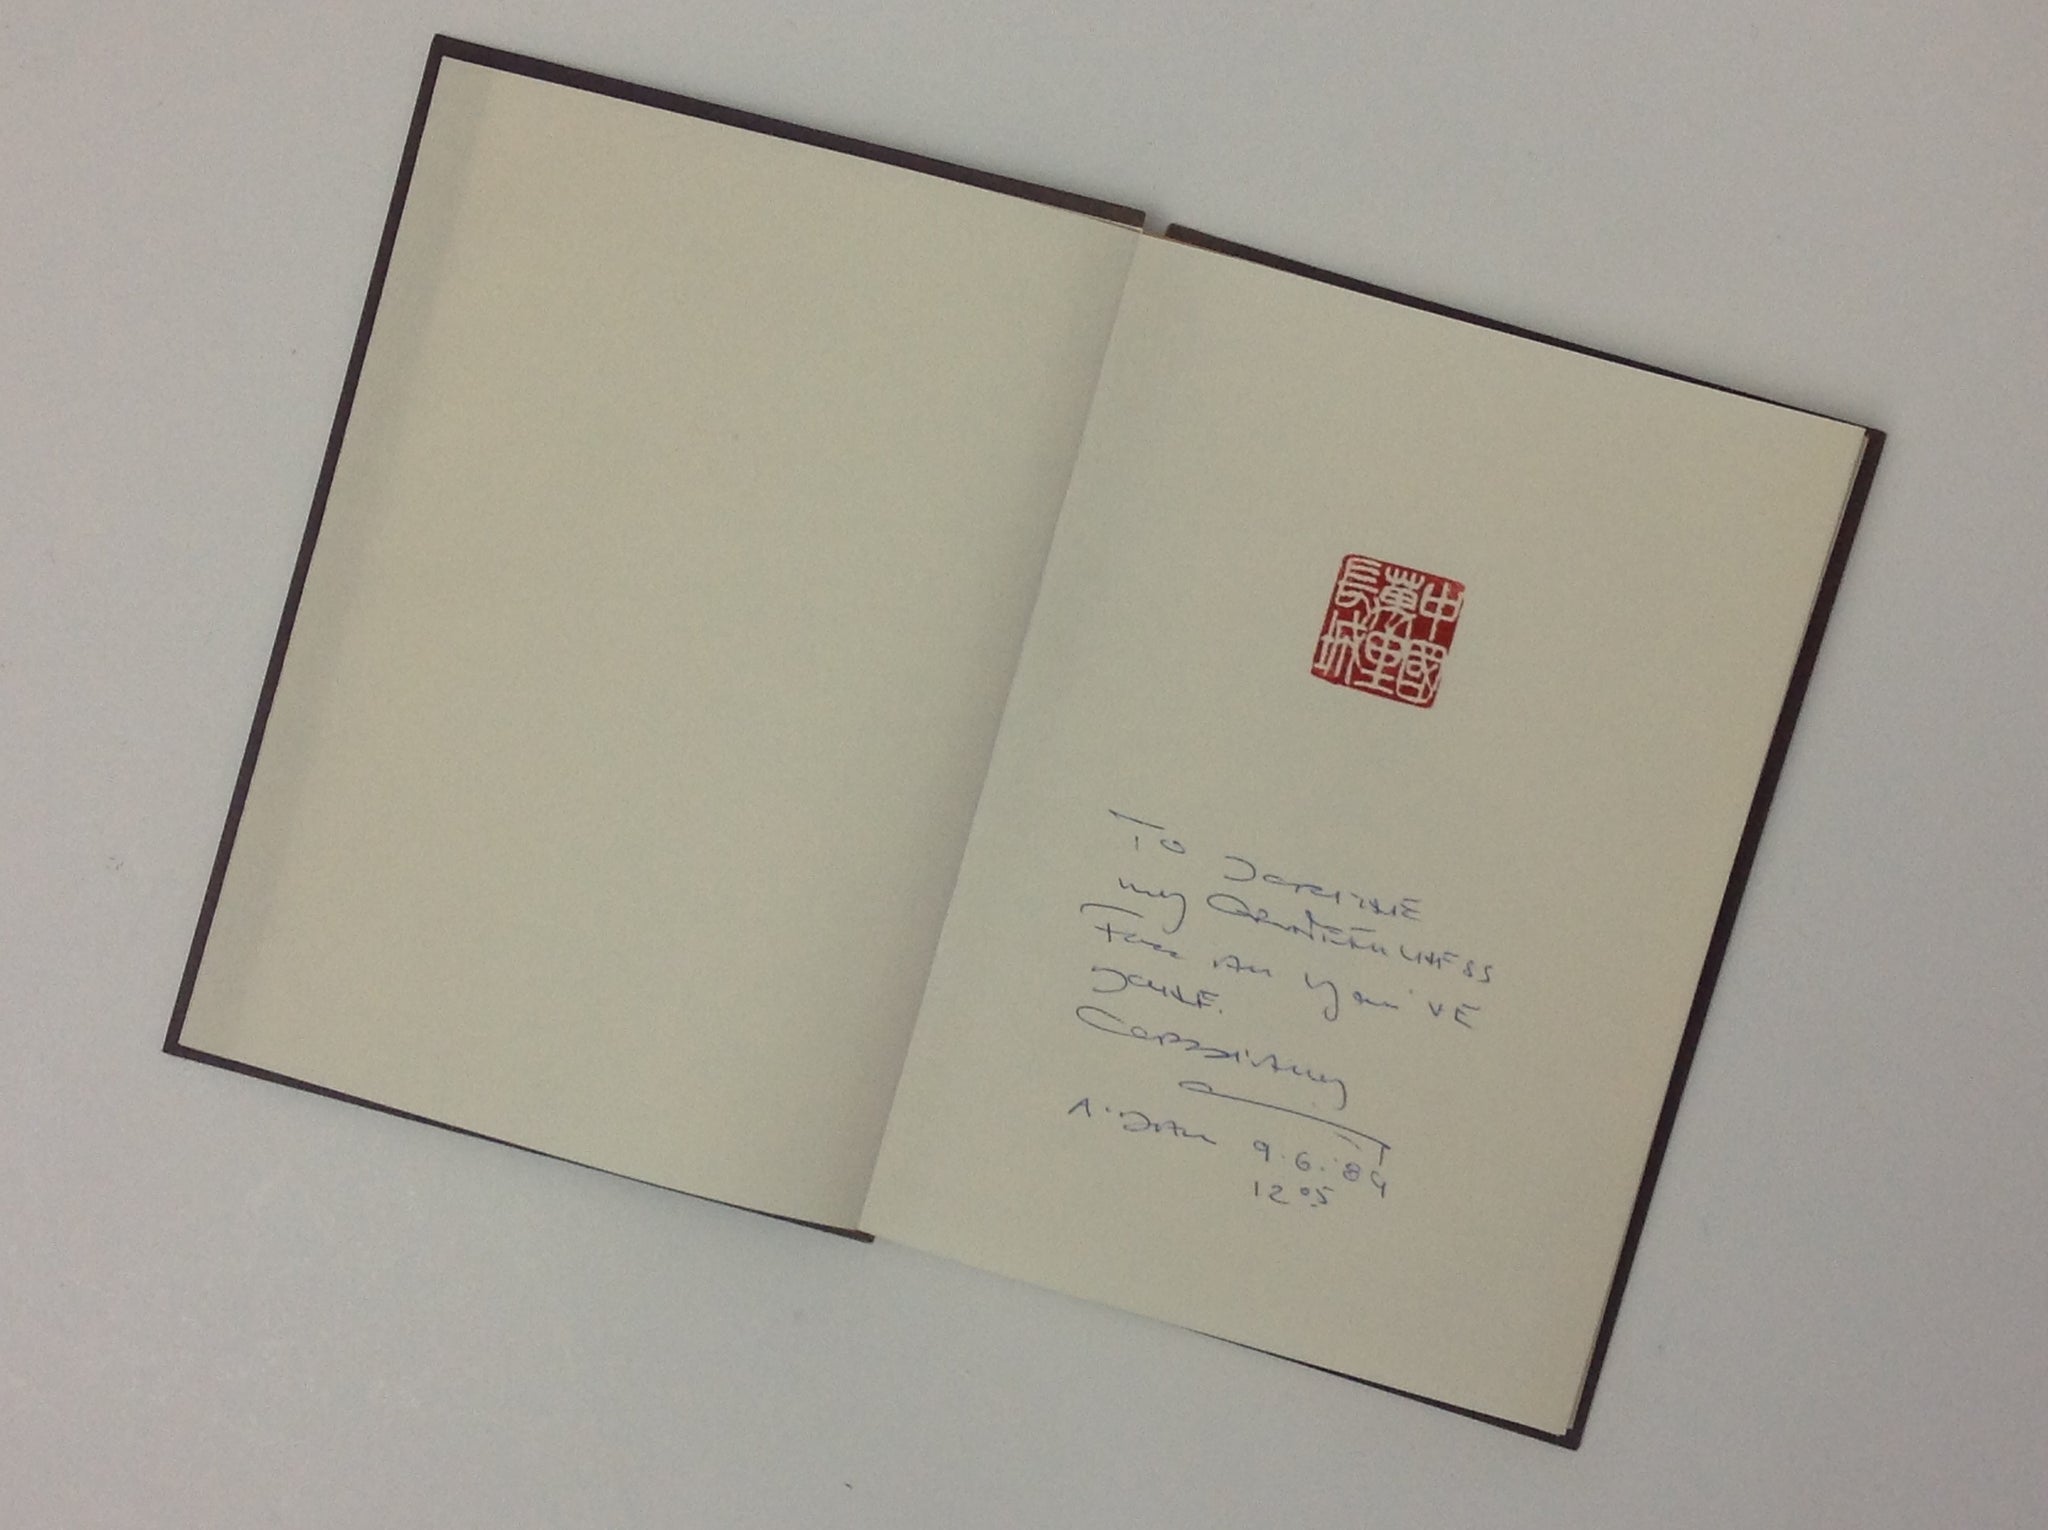 中國
萬里
長城
To
my GRATEFULNESS
For All you've
DONE.
CORDIALLY
9.6.'89
12 05